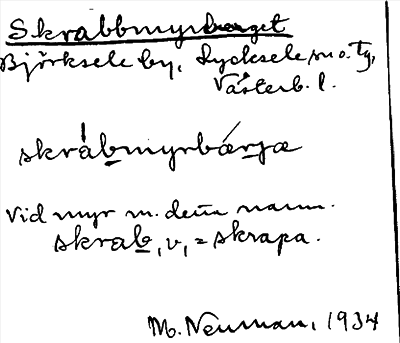 Skrabbmyrberget
Björksele by, Lycksele sn o. tg,
Västerb. l.
skràbmyrbárja
vid myr m. detta namn.
skrab, v, = skrapa.
M. Neuman, 1934